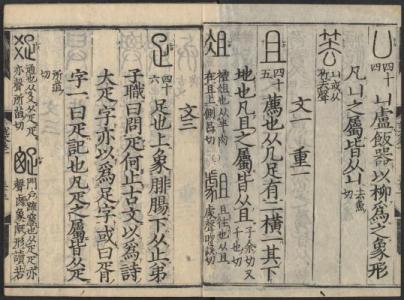 四十四 凵盧飯器以柳爲之象形
凡凵之屬皆从凵 去魚切
凵或从竹去聲
文一 重一
且 四十五 薦也从几足有二橫一其下
地也凡且之屬皆从且 子余切又千也切
俎 禮俎也从半肉在且上側吕切 且往也从且䖒聲昨誤切
文三
疋 四十六 足也上象腓腸下从止弟
子職曰問疋何止古文以爲詩
大疋字亦以爲足字或曰胥
字一曰疋記也凡疋之屬皆从疋
所菹切
通也从爻从疋疋亦聲所菹切 門戶疏窻也从疋疋亦聲囪象𤕟形讀若